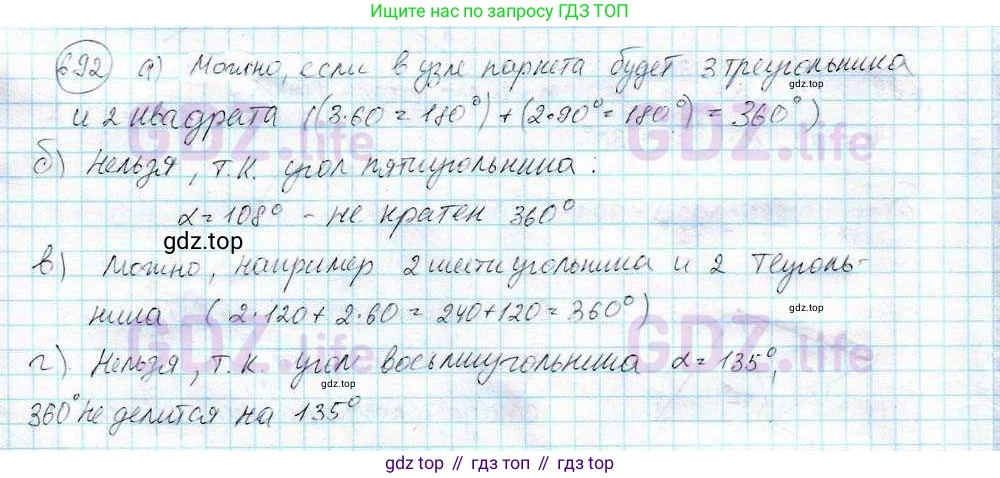 Ищите по запросу ГДЗ ТОП
692) а) Можно, если в узле паркета будет 3 треугольника
gdz.top
и 2 квадрата ((3·60=180°)+(2·90°=180°)=360°)
GDZ.life GDZ.life
б) Нельзя, т.к. угол пятиугольника:
α=108° - не кратен 360°
gdz.top
в) Можно, например 2 шестиугольника и 2 теуголь-
gdz.top
ника (2·120+2·60=240+120=360°)
GDZ.life GDZ.life
г) Нельзя, т.к. угол восьмиугольника α=135°,
gdz.top
360° не делится на 135°
gdz top // гдз топ // gdz.top